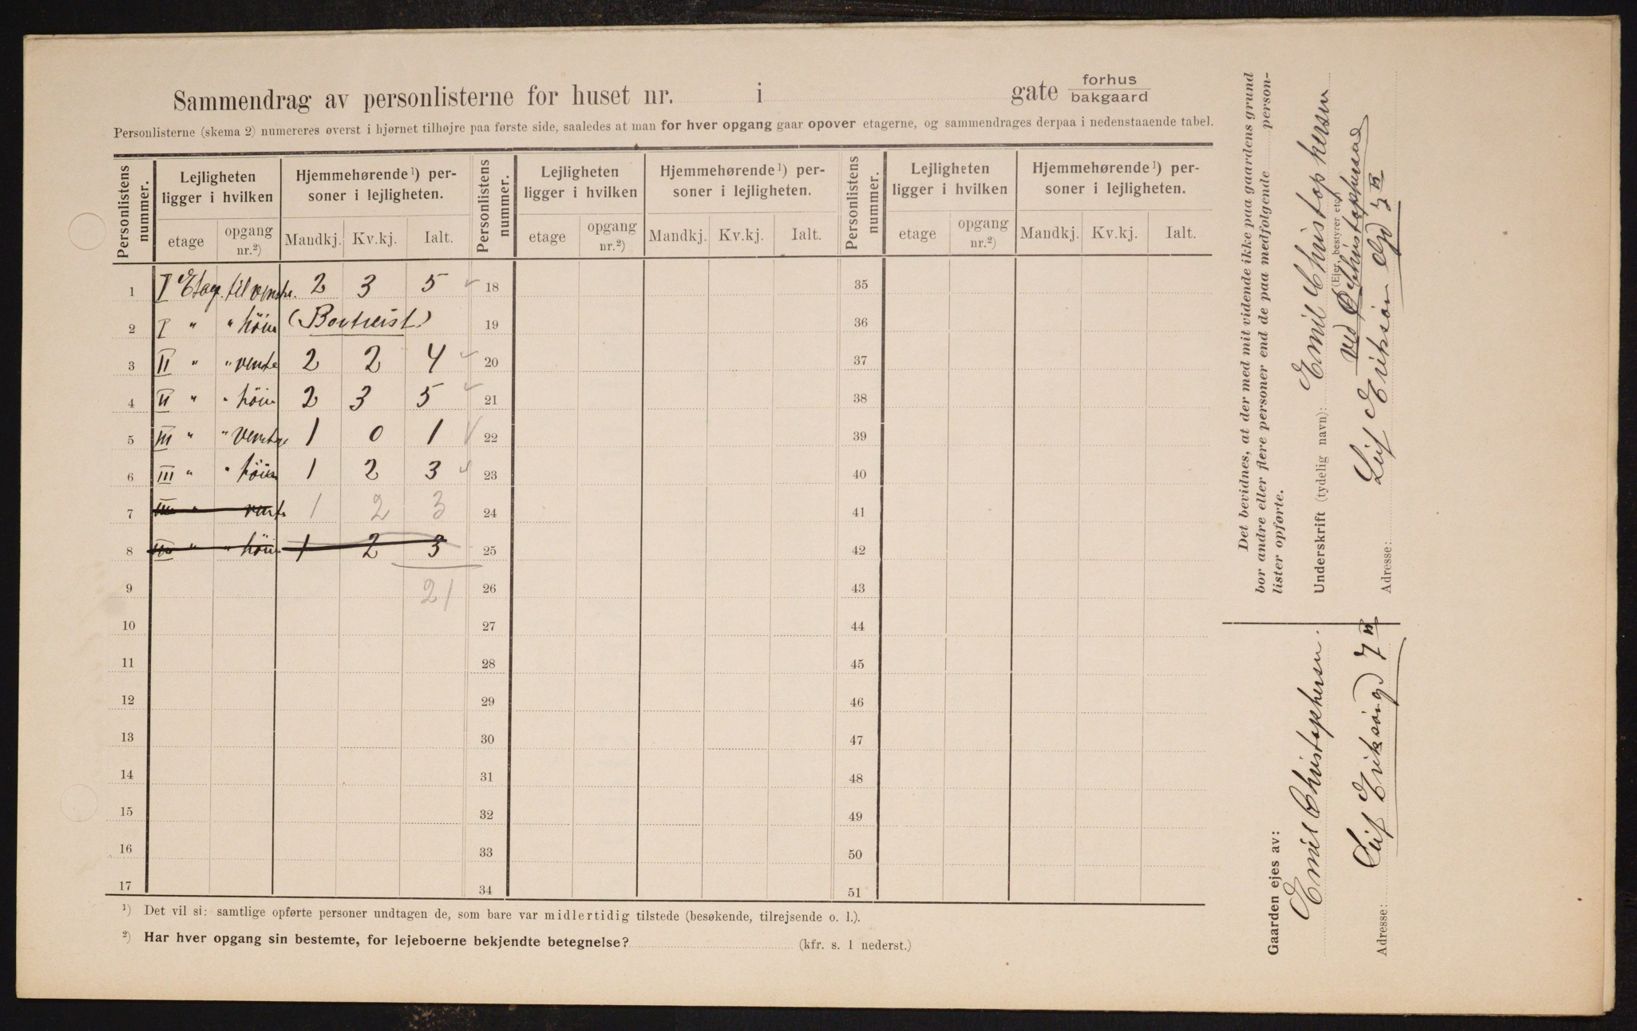 Sammendrag av personlisterne for huset nr. i gate forhus bakgaard
Personlisterne (skema 2) numereres øverst i hjørnet tilhøjre paa første side, saaledes at man for hver opgang gaar opover etagerne, og sammendrages derpaa i nedenstaaende tabel.
Personlistens nummer. Lejligheten ligger i hvilken Hjemmehørende ¹) personer i lejligheten. Personlistens nummer. Lejligheten ligger i hvilken Hjemmehørende ¹) personer i lejligheten. Personlistens nummer. Lejligheten ligger i hvilken Hjemmehørende ¹) personer i lejligheten.
etage opgang nr.²) Mandkj. Kv.kj. Ialt. etage opgang nr.²) Mandkj. Kv.kj. Ialt. etage opgang nr.²) Mandkj. Kv.kj. Ialt.
1 I Etage til venstre. 2 3 5 18 35
2 I " " höire (Bortreist) 19 36
3 II " " venstre 2 2 4 20 37
4 II " " höire 2 3 5 21 38
5 III " " venstre 1 0 1 22 39
6 III " " höire 1 2 3 23 40
7 III " 1 2 3 24 41
8 III " " höire 1 2 3 25 42
9 21 26 43
10 27 44
11 28 45
12 29 46
13 30 47
14 31 48
15 32 49
16 33 50
17 34 51
¹) Det vil si: samtlige opførte personer undtagen de, som bare var midlertidig tilstede (besøkende, tilrejsende o. l.).
²) Har hver opgang sin bestemte, for lejeboerne bekjendte betegnelse? (kfr. s. 1 nederst.)
Det bevidnes, at der med mit vidende ikke paa gaardens grund
bor andre eller flere personer end de paa medfølgende person-
lister opførte.
Underskrift (tydelig navn): Emil Christophersen
(Ejer, bestyrer etc.)
ved
Adresse: Leif Eriksön Gd
Gaarden ejes av:
Emil Christophersen.
Adresse: Leif Eriksöngd 7 II